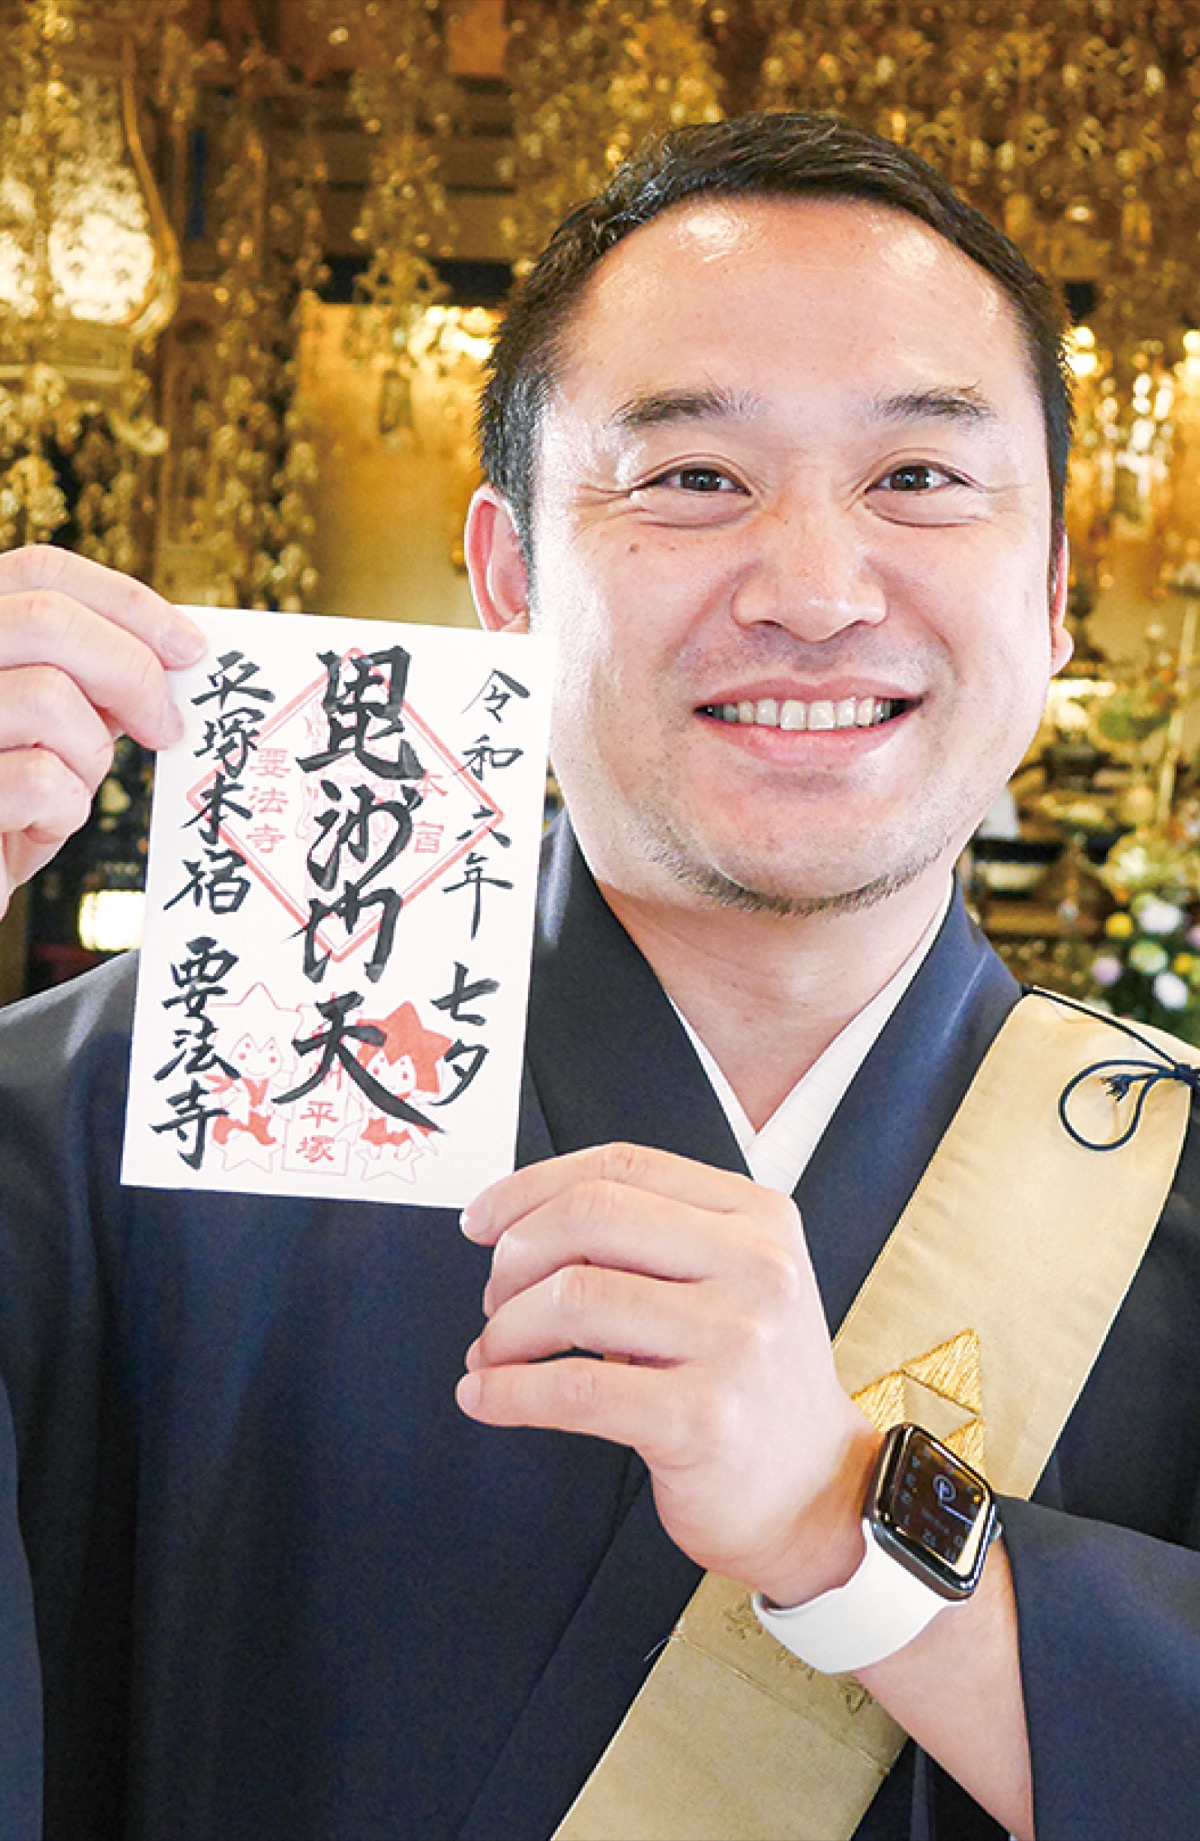 令和六年 七夕
毘沙門天
平塚本宿 要法寺
本宿
要法寺
州平塚